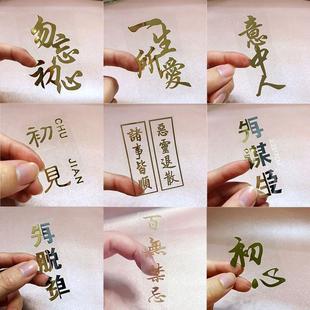 勿忘
初心
一生
所愛
意中人
初見
CHU
JIAN
惡靈退散
諸事皆順
百無禁忌
初心